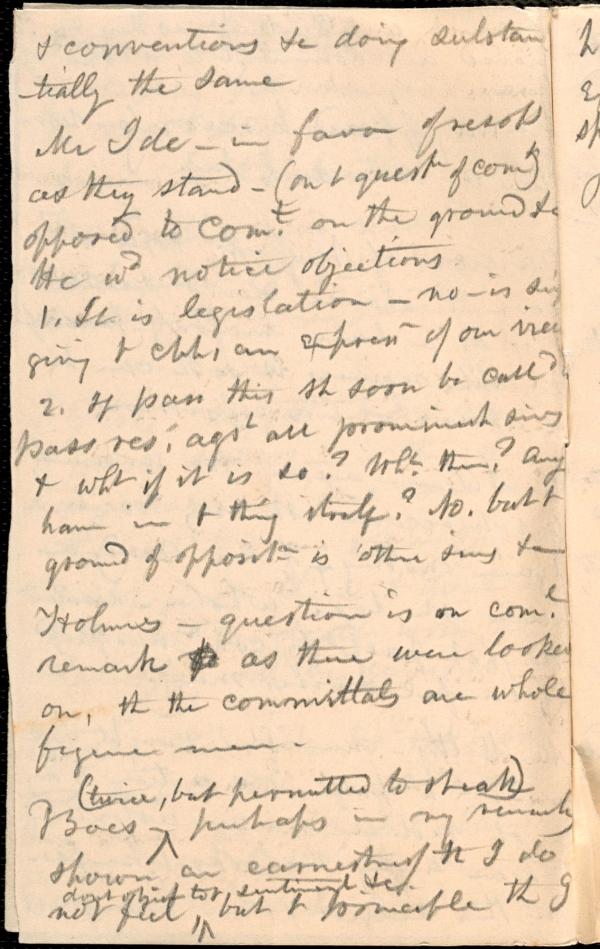 & conventions &c doing substan
-tially the same
Mr Ide – in favor of resols
as they stand – (on t quest<sup>n</sup> of com<sup>t</sup>)
opposed to Com<sup>t</sup>. on the ground &c
He w<sup>d</sup> notice objections
1. It is legislation – no – is sim
giving t chhs an express<sup>n</sup> of our view
2. If pass this sh soon be call<sup>d</sup>
pass res<sup>s</sup>. ags<sup>t</sup> all prominent sins
& wht if it is so? Wht. then? Any
harm in t thing itself? No. but t
ground of opposit<sup>n</sup> is other sins &c
Holmes – question is on com<sup>t</sup>.
remark as there were looker
on, th the committals are whole
figure men.
(twice, but permitted to speak)
Boes – perhaps in my remarks
shown an earnestness th I do
dont object to t sentiment &c.
not feel, but t principle th I